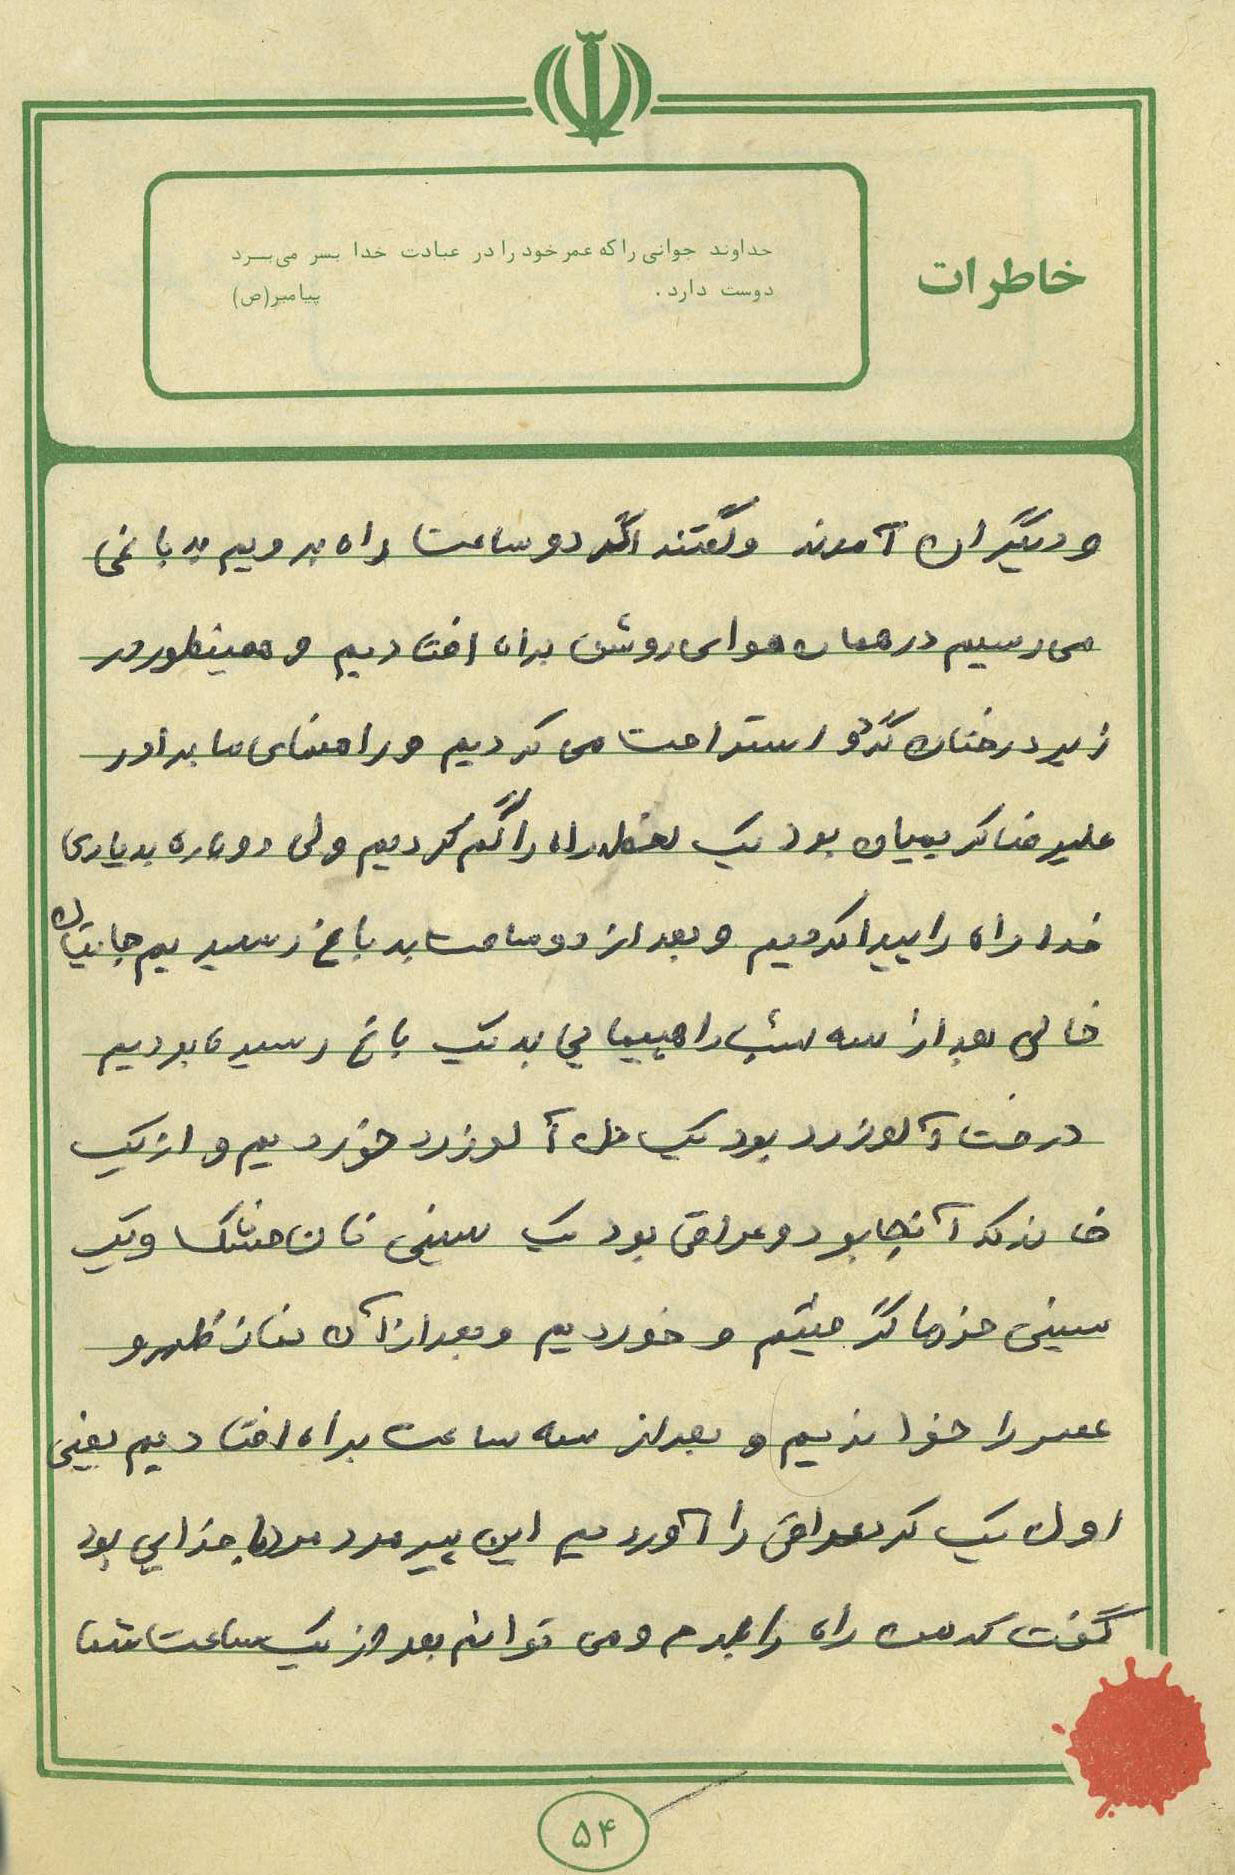 خاطرات
خداوند جوانی را که عمر خود را در عبادت خدا بسر می‌برد
دوست دارد. پیامبر(ص)
و دیگران آمدند و گفتند اگر دو ساعت راه برویم به باغی
می رسیم در همان هوای روشن براه افتادیم و همینطور در
زیر درختان گردو استراحت می کردیم و راهنمای ما برادر
علیرضا کریمیان بود یک لحظه راه را گم کردیم ولی دوباره به یاری
خدا راه را پیدا کردیم و بعد از دو ساعت به باغ رسیدیم جایتان
خالی بعد از سه شب راهپیمایی به یک باغ رسیده بودیم
درخت آلو زرد بود یک آلو زرد خوردیم و از یک
خانه که آنجا بود و عراقی بود یک سینی نان خشک و یک
سینی خرما گرفتیم و خوردیم و بعد از آن نماز ظهر و
عصر را خواندیم و بعد از سه ساعت براه افتادیم یعنی
اول یک کرد عراقی را آوردیم این پیرمرد مرد باخدایی بود
گفت که من راه را بلدم و می توانم بعد از یک ساعت شما
۵۴